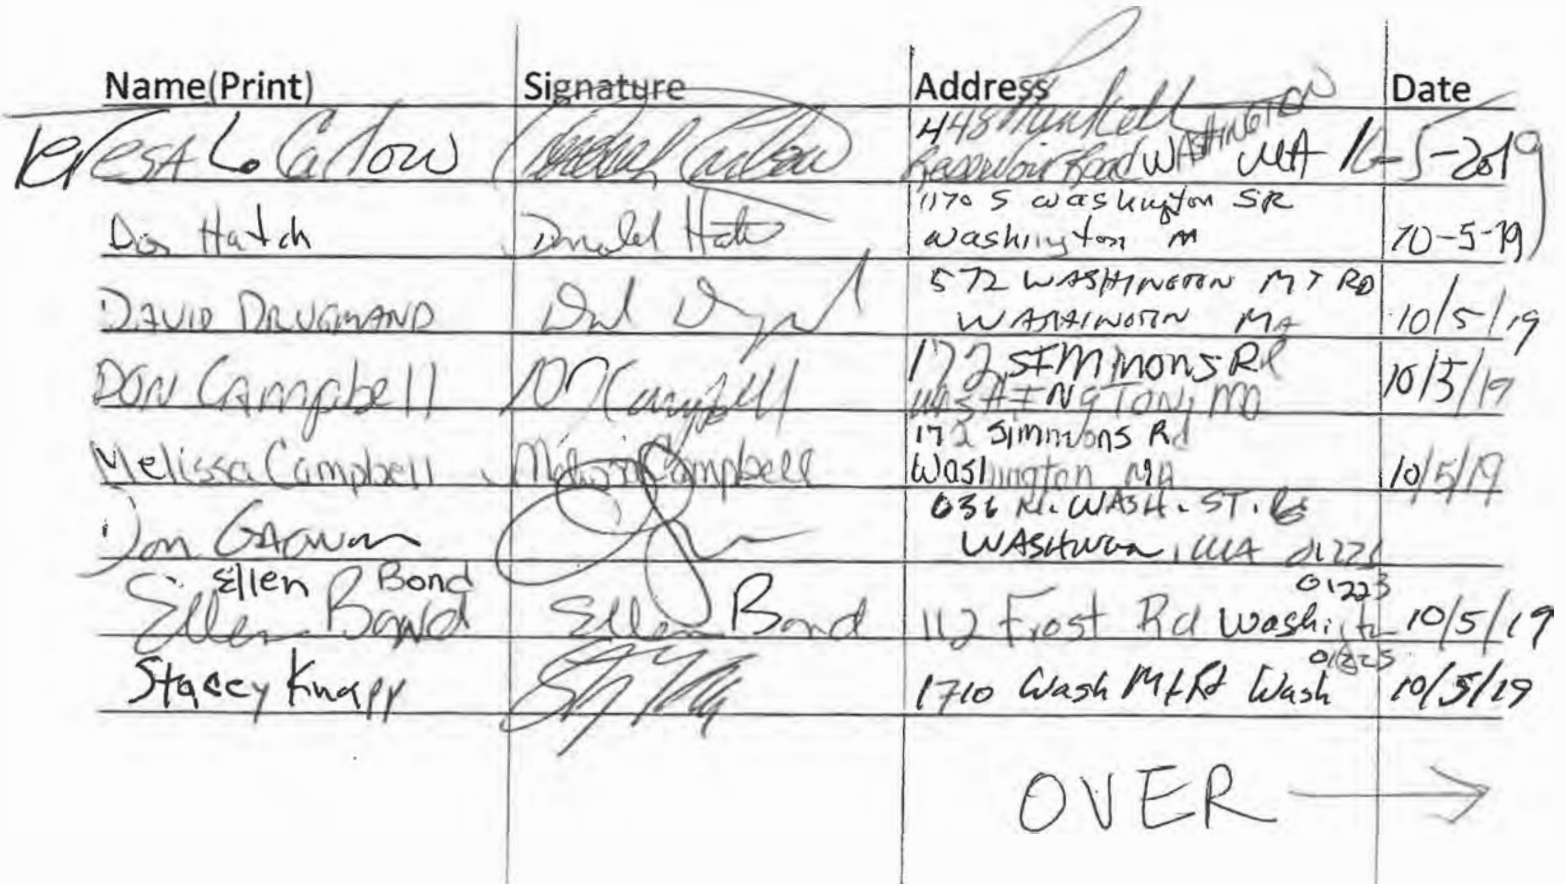 Name(Print) Signature Address Date
Teresa L. Carlow 448 Reservoir Road WASHINGTON MA 10-5-2019
Don Hatch Donald Hatch 1170 S Washington SR
Washington M 10-5-19
DAVID DRUGMAND 572 WASHINGTON MT RD
WASHINGTON MA 10/5/19
DON Campbell Campbell 172 SIMMONS Rd
WASHINGTON, MA 10/5/19
Melissa Campbell Melissa Campbell 172 Simmons Rd
Washington MA 10/5/19
Don 036 N. WASH. ST.
MA
Ellen Bond 01223
Ellen Bond Ellen Bond 112 Frost Rd Washington 10/5/19
01223
Stacey Knapp 1710 Wash Mt Rd Wash 10/5/19
OVER →